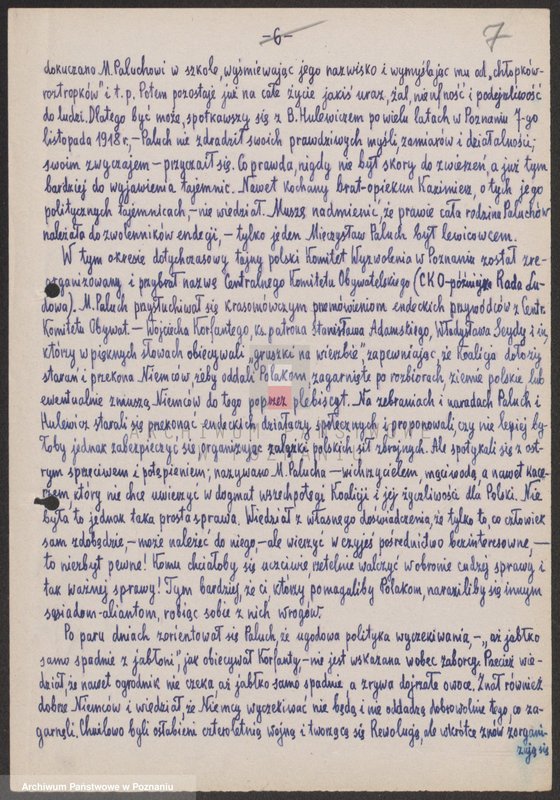 -6-
7
dokuczano M. Paluchowi w szkole, wyśmiewając jego nazwisko i wymyślając mu od „chłopków-
roztropków" i t.p. Potem pozostaje już na całe życie jakiś uraz, żal, nieufność i podejrzliwość
do ludzi. Dlatego być może, spotkawszy się z B. Hulewiczem po wielu latach w Poznaniu 7-go
listopada 1918 r., – Paluch nie zdradził swoich prawdziwych myśli, zamiarów i działalności;
swoim zwyczajem – przyczaił się. Co prawda, nigdy nie był skory do zwierzeń, a już tym
bardziej do wyjawienia tajemnic. Nawet kochany brat-opiekun Kazimierz, o tych jego
politycznych tajemnicach, – nie wiedział. Muszę nadmienić, że prawie cała rodzina Paluchów
należała do zwolenników endecji, – tylko jeden Mieczysław Paluch był lewicowcem.
W tym okresie dotychczasowy tajny polski Komitet Wyzwolenia w Poznaniu został zre-
organizowany i przybrał nazwę Centralnego Komitetu Obywatelskiego (CKO – później Rada Lu-
dowa). M. Paluch przysłuchiwał się krasomówczym przemówieniom endeckich przywódców z Centr.
Komitetu Obywat. – Wojciecha Korfantego, ks. patrona Stanisława Adamskiego, Władysława Seydy i in.,
którzy w pięknych słowach obiecywali „gruszki na wierzbie" zapewniając, że Koalicja dołoży
starań i przekona Niemców, żeby oddali Polakom, zagarnięte po rozbiorach, ziemie polskie lub
ewentualnie zmuszą Niemców do tego poprzez plebiscyt. Na zebraniach i naradach Paluch i
Hulewicz starali się przekonać endeckich działaczy społecznych i proponowali, czy nie lepiej by-
łoby jednak zabezpieczyć się, organizując zalążki polskich sił zbrojnych. Ale spotykali się z ost-
rym sprzeciwem i potępieniem; nazywano M. Palucha – wichrzycielem, mąciwodą a nawet kace-
rzem, który nie chce uwierzyć w dogmat wszechpotęgi Koalicji i jej życzliwości dla Polski. Nie
była to jednak taka prosta sprawa. Wiedział z własnego doświadczenia, że tylko to, co człowiek
sam zdobędzie, – może należeć do niego, – ale wierzyć w czyjeś pośrednictwo bezinteresowne, –
to niezbyt pewne! Komu chciałoby się uczciwie, rzetelnie walczyć w obronie cudzej sprawy i
tak ważnej sprawy! Tym bardziej, że ci którzy pomagaliby Polakom, naraziliby się innym
sąsiadom-aliantom, robiąc sobie z nich wrogów.
Po paru dniach zorientował się Paluch, że ugodowa polityka wyczekiwania, – „aż jabłko
samo spadnie z jabłoni", jak obiecywał Korfanty – nie jest wskazana wobec zaborcy. Przecież wie-
dział, że nawet ogrodnik nie czeka aż jabłko samo spadnie a zrywa dojrzałe owoce. Znał również
dobrze Niemców i wiedział, że Niemcy wyczekiwać nie będą i nie oddadzą dobrowolnie tego, co za-
garnęli. Chwilowo byli osłabieni czteroletnią wojną i tworzącą się Rewolucją, ale wkrótce znów zorgani-
zują się
ARCHIWUM PAŃSTWOWE
Archiwum Państwowe w Poznaniu